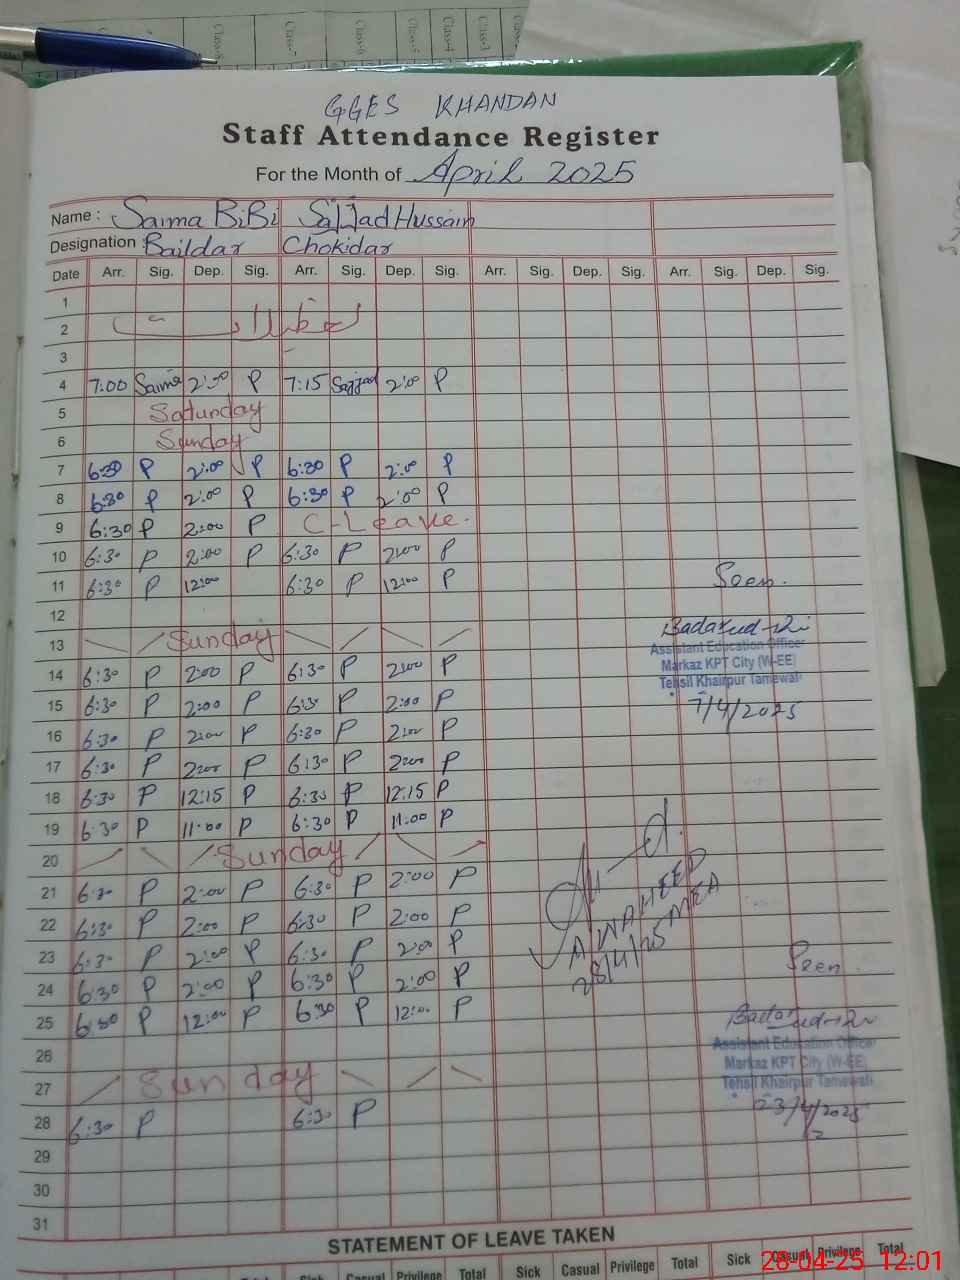 Class-8 Class-7 Class-6 Class-5 Class-4 Class-3
GGES KHANDAN
Staff Attendance Register
For the Month of April 2025
Name : Saima BiBi Sajjad Hussain
Designation : Baildar Chokidar
Date Arr. Sig. Dep. Sig. Arr. Sig. Dep. Sig. Arr. Sig. Dep. Sig. Arr. Sig. Dep. Sig.
1
2
3
4 7:00 Saima 2:00 P 7:15 Sajjad 2:00 P
5 Saturday
6 Sunday
7 6:30 P 2:00 P 6:30 P 2:00 P
8 6:30 P 2:00 P 6:30 P 2:00 P
9 6:30 P 2:00 P C-Leave.
10 6:30 P 2:00 P 6:30 P 2:00 P
11 6:30 P 12:00 6:30 P 12:00 P
Seen.
12
13 Sunday
Assistant Education Officer
Markaz KPT City (W-EE)
Tehsil Khairpur Tamewali
7/4/2025
14 6:30 P 2:00 P 6:30 P 2:00 P
15 6:30 P 2:00 P 6:3 P 2:00 P
16 6:30 P 2:00 P 6:30 P 2:00 P
17 6:30 P 2:00 P 6:30 P 2:00 P
18 6:30 P 12:15 P 6:30 P 12:15 P
19 6:30 P 11:00 P 6:30 P 11:00 P
20 Sunday
21 6:30 P 2:00 P 6:30 P 2:00 P
22 6:30 P 2:00 P 6:30 P 2:00 P
23 6:30 P 2:00 P 6:30 P 2:00 P
24 6:30 P 2:00 P 6:30 P 2:00 P
25 6:30 P 12:00 P 6:30 P 12:00 P
A WAHEED
MEA
28/4/25
Seen.
Assistant Education Officer
Markaz KPT City (W-EE)
Tehsil Khairpur Tamewali
23/4/2025
26
27 Sunday
28 6:30 P 6:30 P
29
30
31
STATEMENT OF LEAVE TAKEN
Total Sick Casual Privilege Total Sick Casual Privilege Total Sick Casual Privilege Total
28-04-25 12:01